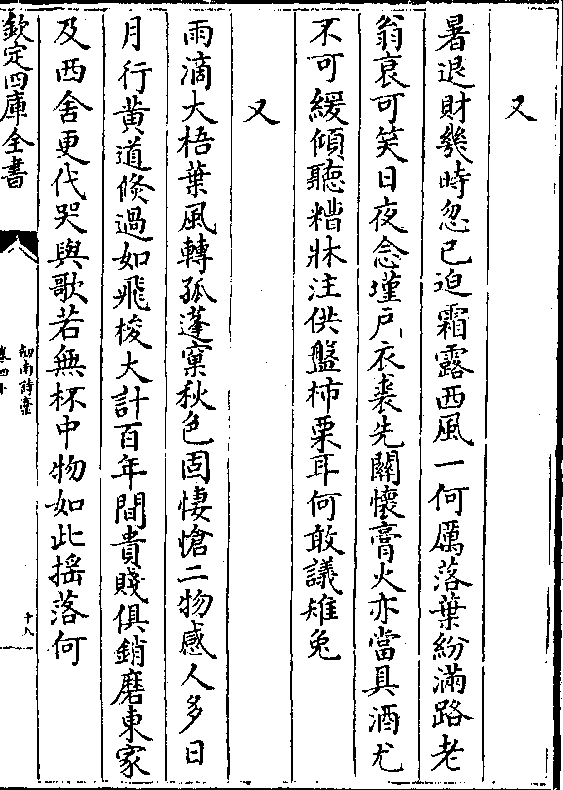 又
暑退財幾時忽已迫霜露西風一何厲落葉紛滿路老
翁衰可笑日夜念墐戶衣裘先關懷膏火亦當具酒尤
不可緩傾聽糟牀注供盤柿栗耳何敢議雉兔
又
雨滴大梧葉風轉孤蓬窠秋色固悽愴二物感人多日
月行黃道倐過如飛梭大計百年間貴賤俱銷磨東家
及西舍更代哭與歌若無杯中物如此揺落何
欽定四庫全書
劍南詩稾
卷四十
十八